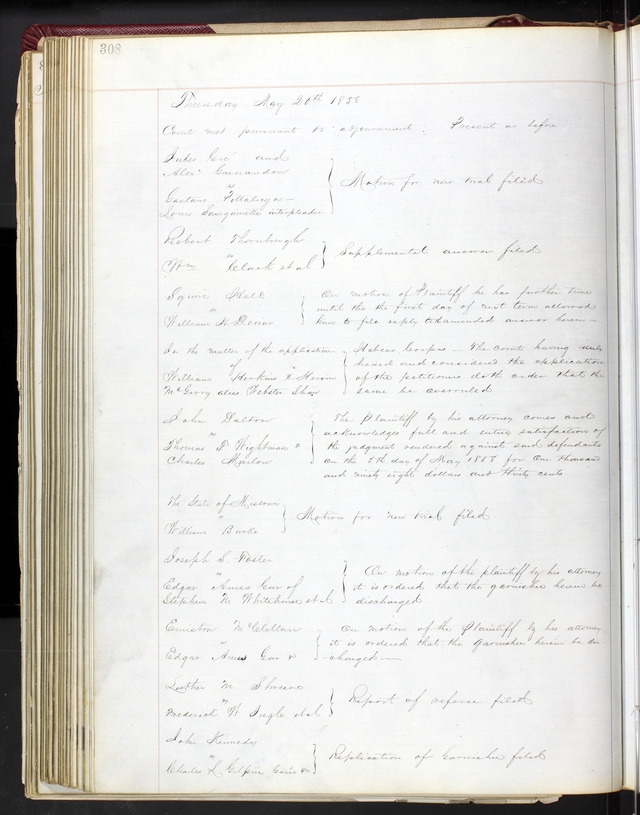 308
Thursday May 20th 1858
Court met pursuant to adjournment. Present as before
and
Alexr
vs
Gaetano
Louis interpleader
Motion for new trial filed
Robert Thornburgh
vs
Wm Clark et al
Supplemental answer filed
Squire Hall
vs
William H
On motion of Plaintiff he has further time
until the the first day of next term allowed
him to file reply to amended answer herein
In the matter of the application
of
William Henkins &
McGrory alias Webster Shaw
Habeas Corpus – The Court having
heard and considered the application
of the petitioners doth order that the
same be overruled
John
vs
Thomas T Wightman &
Charles Marlow
The Plaintiff by his attorney comes and
acknowledges full and entire satisfaction of
the judgment rendered against said defendants
on the day of May 1858 for One thousand
and ninety eight dollars and thirty cents
The State of Missouri
vs
William Burke
Motion for new trial filed
Joseph S Foster
vs
Edgar Ames Gar of
Stephen M Whitehouse et al
On motion of the plaintiff by his attorney
it is ordered that the garnishee herein be
discharged
McClellan
vs
Edgar Ames Gar &
On motion of the Plaintiff by his attorney
it is ordered that the Garnishee herein be dis
charged
Luther M
vs
Frederick W et al
Report of referee filed
John Kennedy
vs
Charles L Gilpin
Replication of Garnishee filed